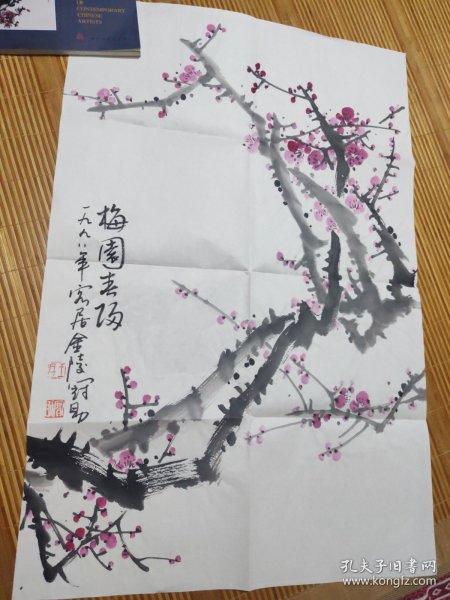 OF
CONTEMPORARY
CHINESE
ARTISTS
梅園春陽
一九九八年客居金陵
孔夫子旧书网
www.kongfz.com